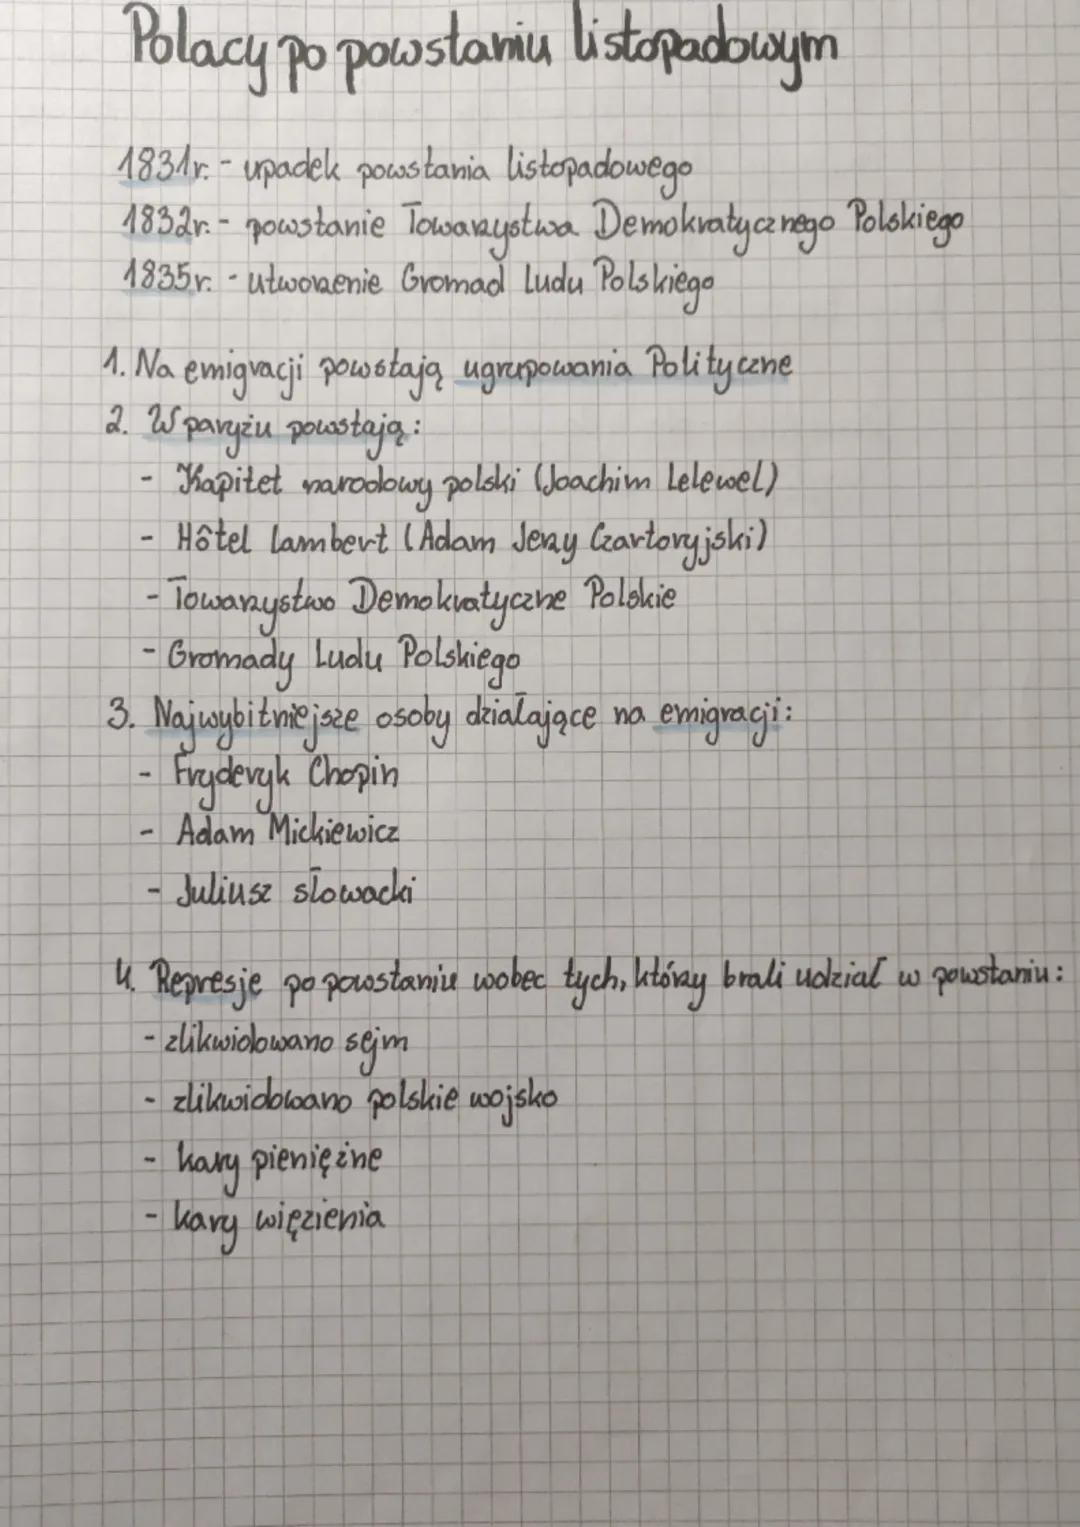 Polacy po powstaniu listopadowym
1831r. - upadek powstania listopadowego
1832r. - powstanie Towarzystwa Demokratycznego Polskiego
1835r. - utworzenie Gromad Ludu Polskiego
1. Na emigracji powstają ugrupowania Polityczne
2. W paryżu powstają:
- Kapitet narodowy polski (Joachim Lelewel)
- Hôtel Lambert (Adam Jerzy Czartoryjski)
- Towarzystwo Demokratyczne Polskie
- Gromady Ludu Polskiego
3. Najwybitniejsze osoby działające na emigracji:
- Fryderyk Chopin
- Adam Mickiewicz
- Juliusz słowacki
4. Represje po powstaniu wobec tych, którzy brali udział w powstaniu:
- zlikwidowano sejm
- zlikwidowano polskie wojsko
- kary pieniężne
- kary więzienia